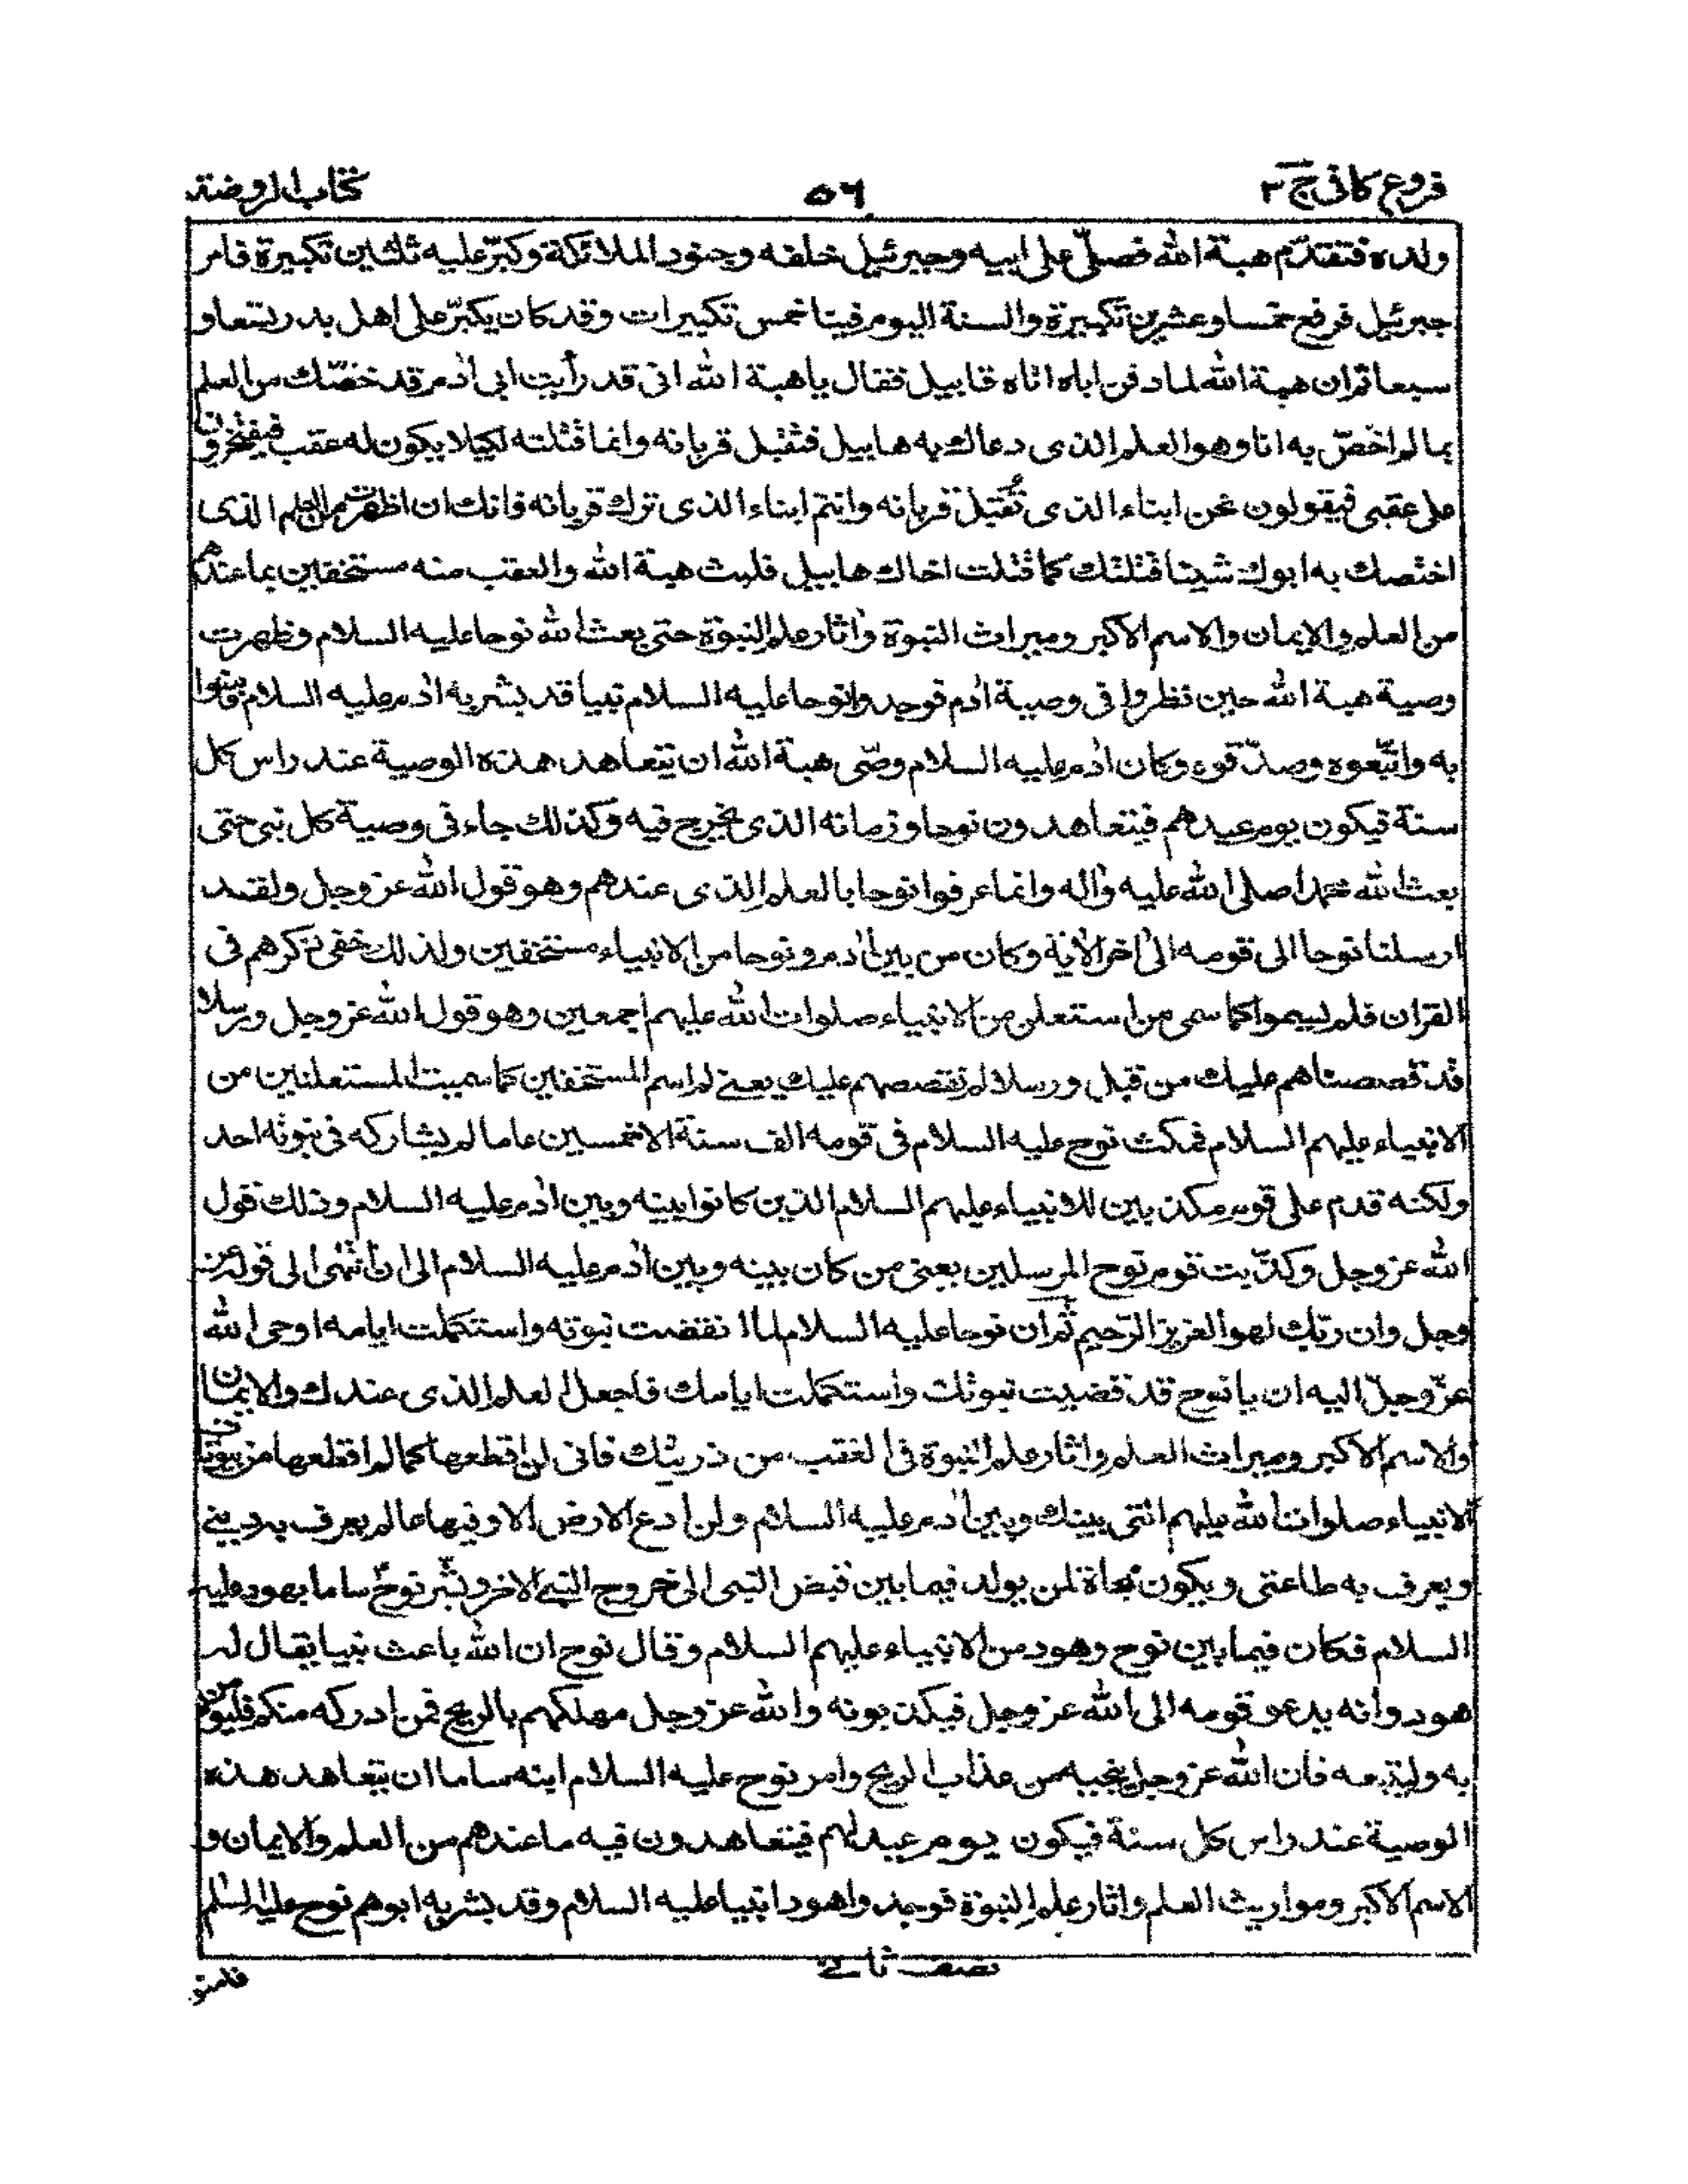 فروع کافی ج ۳
۵۶
کتاب الروضة
ولده فتقدّم هبة الله فصلّى على ابيه وجبرئيل خلفه وجنود الملائكة وكبّر عليه ثلثين تكبيرة فامر
جبرئيل فرفع خمسا وعشرين تكبيرة والسنة اليوم فينا خمس تكبيرات وقد كان يكبّر على اهل بدر تسعا و
سبعا ثم ان هبة الله لما دفن اباه اتاه قابيل فقال يا هبة الله انى قد رأيت ابى ادم قد خصّك من العلم
بما لم اخصّ به انا وهو العلم الذى دعا به اخوك هابيل فتقبل قربانه وانما قتلته لكيلا يكون له عقب فيفتخرون
على عقبى فيقولون نحن ابناء الذى تُقُبِّل قربانه وانتم ابناء الذى ترك قربانه فانك ان اظهرت من العلم الذى
اختصك به ابوك شيئا قتلتك كما قتلت اخاك هابيل فلبث هبة الله والعقب منه مستخفين بما عندهم
من العلم والايمان والاسم الاكبر وميراث النبوة واثار علم النبوة حتى بعث الله نوحا عليه السلام وظهرت
وصية هبة الله حين نظروا فى وصية ادم فوجدوا نوحا عليه السلام نبيا قد بشر به ادم عليه السلام فامنوا
به واتّبعوه وصدّقوه وكان ادم عليه السلام وصّى هبة الله ان يتعاهد هذه الوصية عند راس كل
سنة فيكون يوم عيدهم فيتعاهدون نوحا وزمانه الذى يخرج فيه وكذلك جاء فى وصية كل نبى حتى
بعث الله محمدا صلى الله عليه واله وانما عرفوا نوحا بالعلم الذى عندهم وهو قول الله عز وجل ولقد
ارسلنا نوحا الى قومه الى اخر الاية وكان من بين ادم ونوحا من الانبياء مستخفين ولذلك خفى ذكرهم فى
القران فلم يسموا كما سمى من استعلن من الانبياء صلوات الله عليهم اجمعين وهو قول الله عز وجل ورسلا
قد قصصناهم عليك من قبل ورسلا لم نقصصهم عليك يعنے لم اسم المستخفين كما سميت المستعلنين من
الانبياء عليهم السلام فمكث نوح عليه السلام فى قومه الف سنة الا خمسين عاما لم يشاركه فى نبوته احد
ولكنه قدم على قوم مكذبين للانبياء عليهم السلام الذين كانوا بينه وبين ادم عليه السلام وذلك قول
الله عز وجل وكذّبت قوم نوح المرسلين يعنى من كان بينه وبين ادم عليه السلام الى ان انتهى الى قوله عز
وجل وان ربّك لهو العزيز الرّحيم ثم ان نوحا عليه السلام لما انقضت نبوته واستكملت ايامه اوحى الله
عزّ وجلّ اليه ان يا نوح قد قضيت نبوتك واستكملت ايامك فاجعل العلم الذى عندك والايمان
والاسم الاكبر وميراث العلم واثار علم النبوة فى العقب من ذريتك فانى لن اقطعها كما لم اقطعها من بيوتات
الانبياء صلوات الله عليهم التى بينك وبين ادم عليه السلام ولن ادع الارض الا وفيها عالم يعرف به دينے
ويعرف به طاعتى ويكون نجاة لمن يولد فيما بين قبض النبى الى خروج النبى الاخر وبشّر نوحٌ ساما بهود عليه
السلام فكان فيما بين نوح وهود من الانبياء عليهم السلام وقال نوح ان الله باعث نبيا يقال له
هود وانه يدعو قومه الى الله عز وجل فيكذبونه والله عز وجل مهلكهم بالريح فمن ادركه منكم فليؤمن
به وليتبعه فان الله عز وجل ينجيه من عذاب الريح وامر نوح عليه السلام ابنه ساما ان يتعاهد هذه
الوصية عند راس كل سنة فيكون يوم عيد لهم فيتعاهدون فيه ما عندهم من العلم والايمان و
الاسم الاكبر ومواريث العلم واثار علم النبوة فوجدوا هودا نبيا عليه السلام وقد بشر به ابوهم نوح عليه السلم
نصف ثانے
فامنو